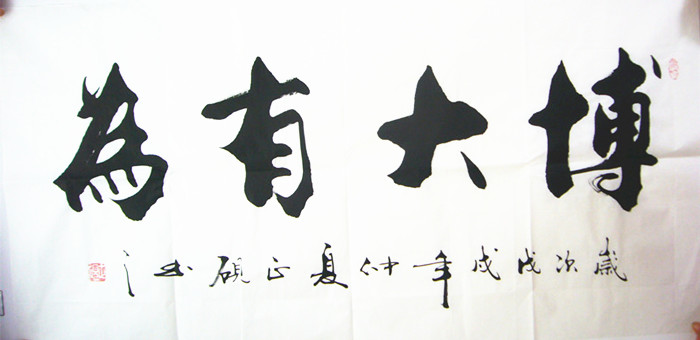 博大有為
歲次戊戌年仲夏正碩书之